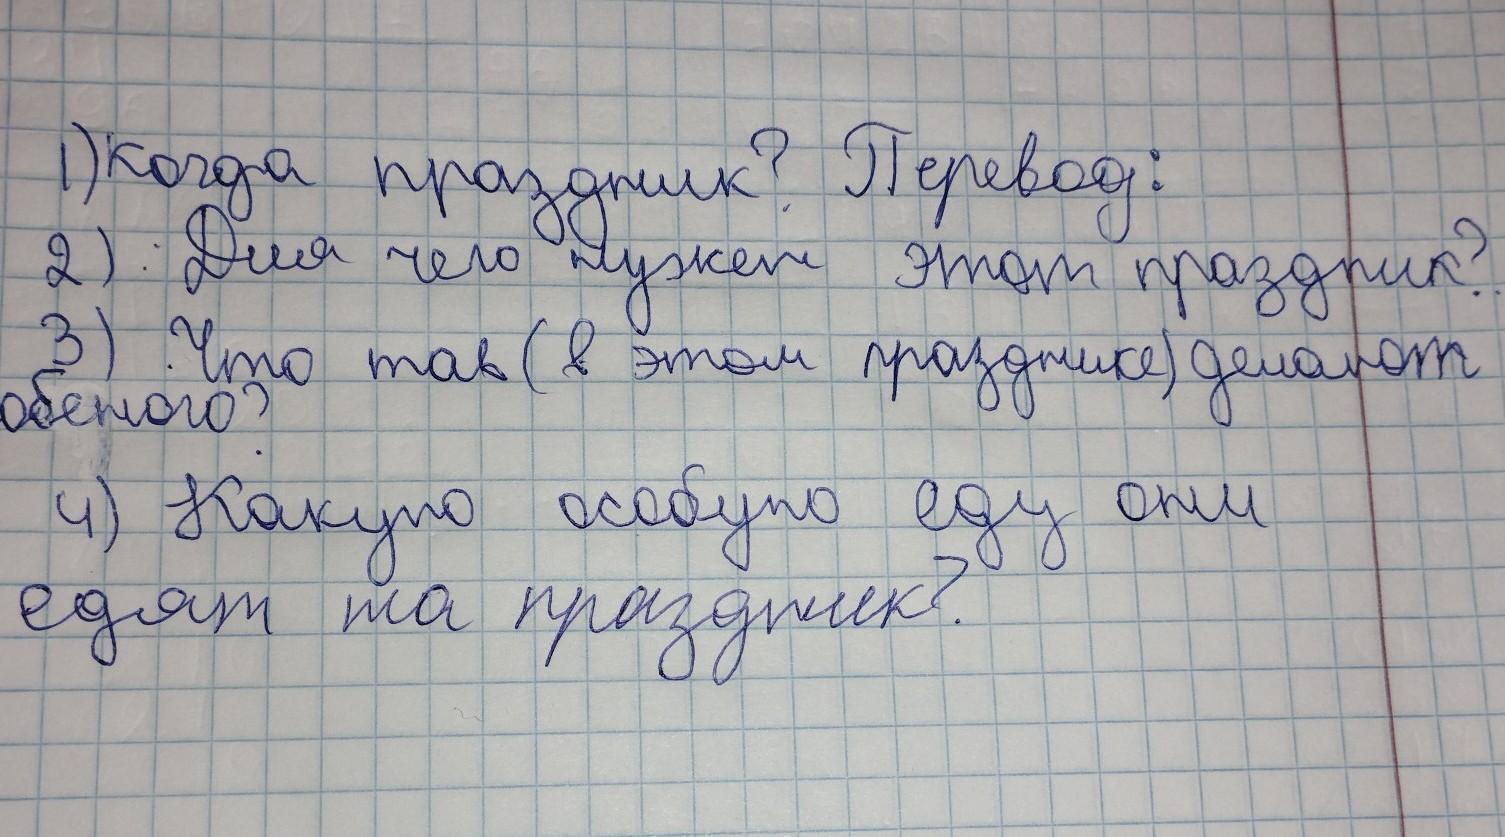 1) Когда праздник? Перевод:
2) Для чего нужен этот праздник?
3) Что там (в этом празднике) делают
обычного?
4) Какую особую еду они
едят на праздник?